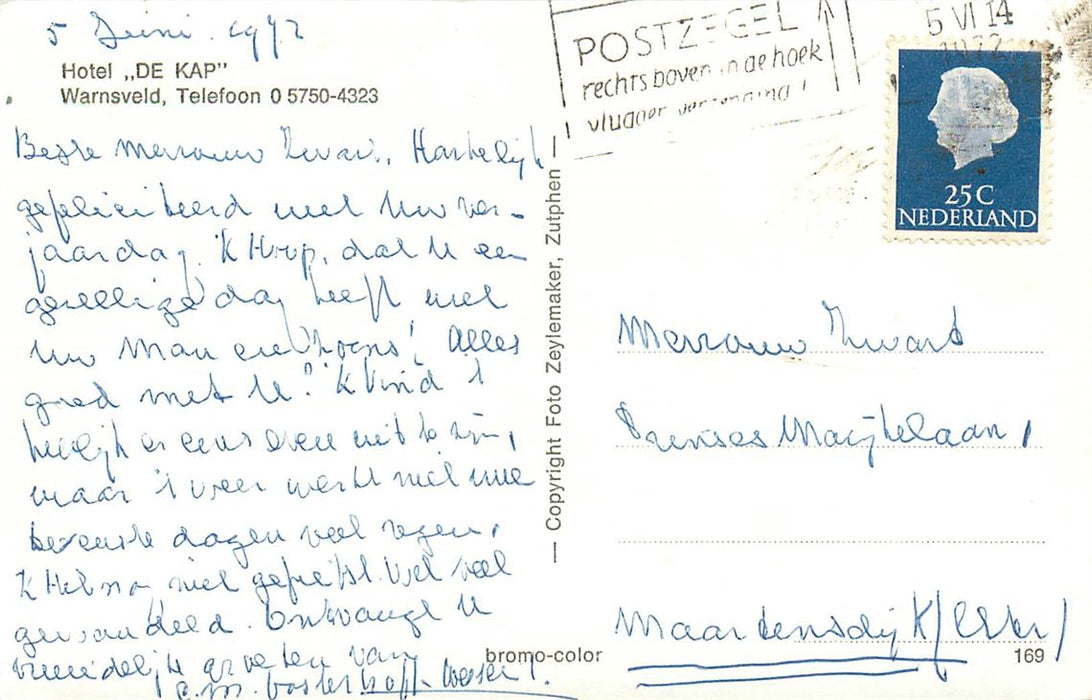 5 Juni. 1972
Hotel „DE KAP”
Warnsveld, Telefoon 0 5750-4323
Beste Mevrouw Zwart, Hartelijk
gefeliciteerd met Uw ver-
jaardag. 'k Hoop, dat U een
gezellige dag heeft met
Uw Man en
Alles
goed met U? 'k Vind 't
heerlijk er eens even uit te zijn,
maar 't weer werkt niet mee
de eerste dagen veel regen,
'k Heb nog niet gefietst. Wel veel
gewandeld. Ontvangt U
vriendelijke groeten van
C.M. Oosterhoff-
— Copyright Foto Zeylemaker, Zutphen —
bromo-color
POSTZEGEL
rechts boven in de hoek
vlugger verzending!
5 VI 14
1972
25C
NEDERLAND
Mevrouw Zwart
Prinses Marijkelaan,
Maartensdijk
169